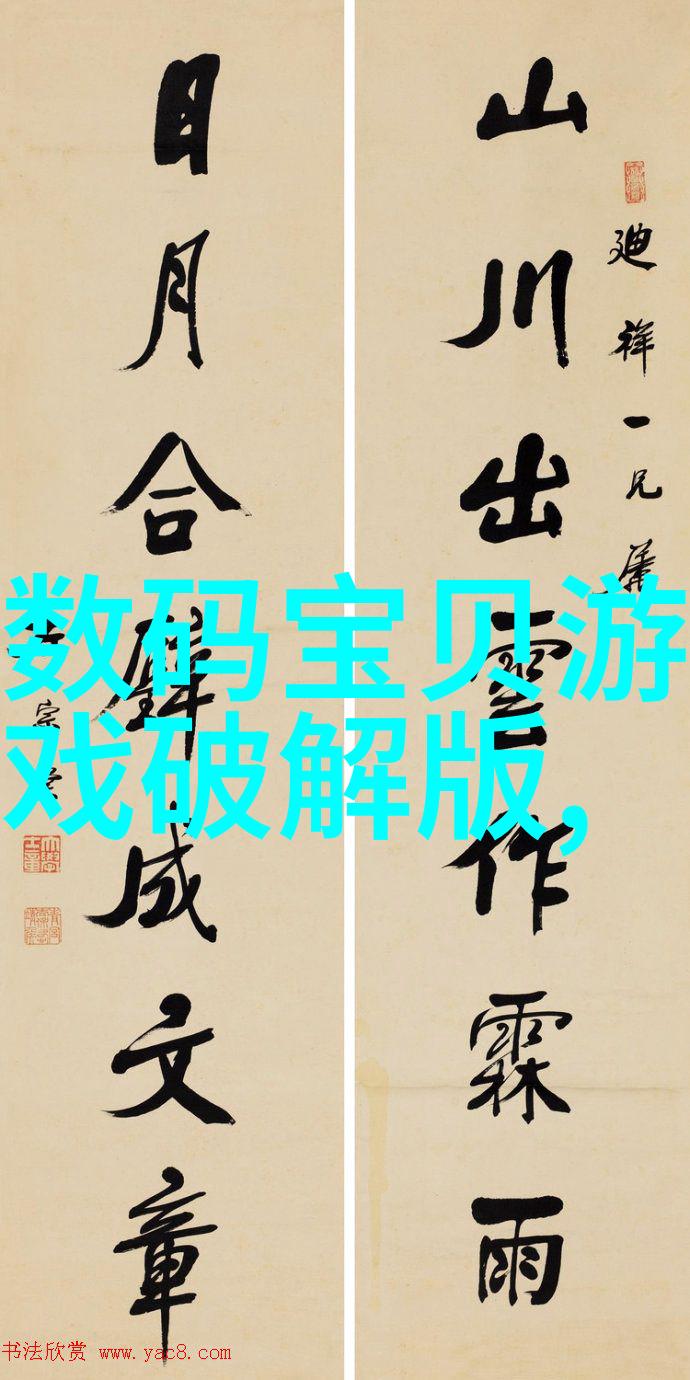 山川出雲作霖雨
廸祥一兄屬
日月合璧成文章
宗棠
数码宝贝游
戏破解版,
书法欣赏 www.yac8.com